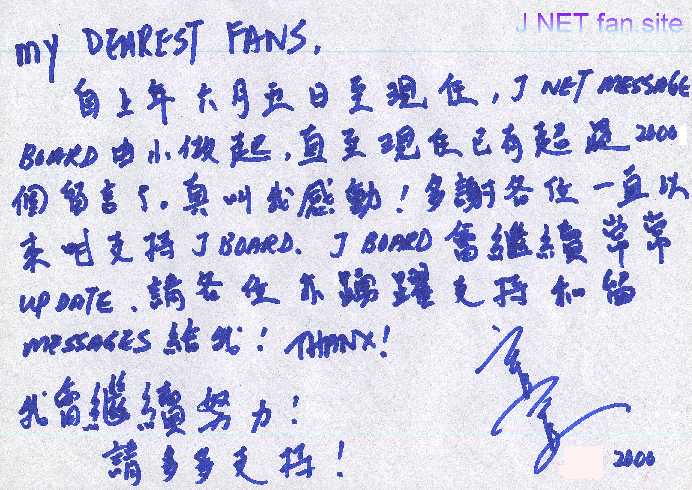 J NET fan.site
my DEAREST FANS,
自上年六月五日至現在,J NET MESSAGE
BOARD由小做起,直至現在已有超過2000
個留言了。真叫我感動!多謝各位一直以
來的支持J BOARD. J BOARD會繼續常常
UPDATE.請各位亦踴躍支持和留
MESSAGES給我!THANX!
我會繼續努力!
請多多支持!
2000